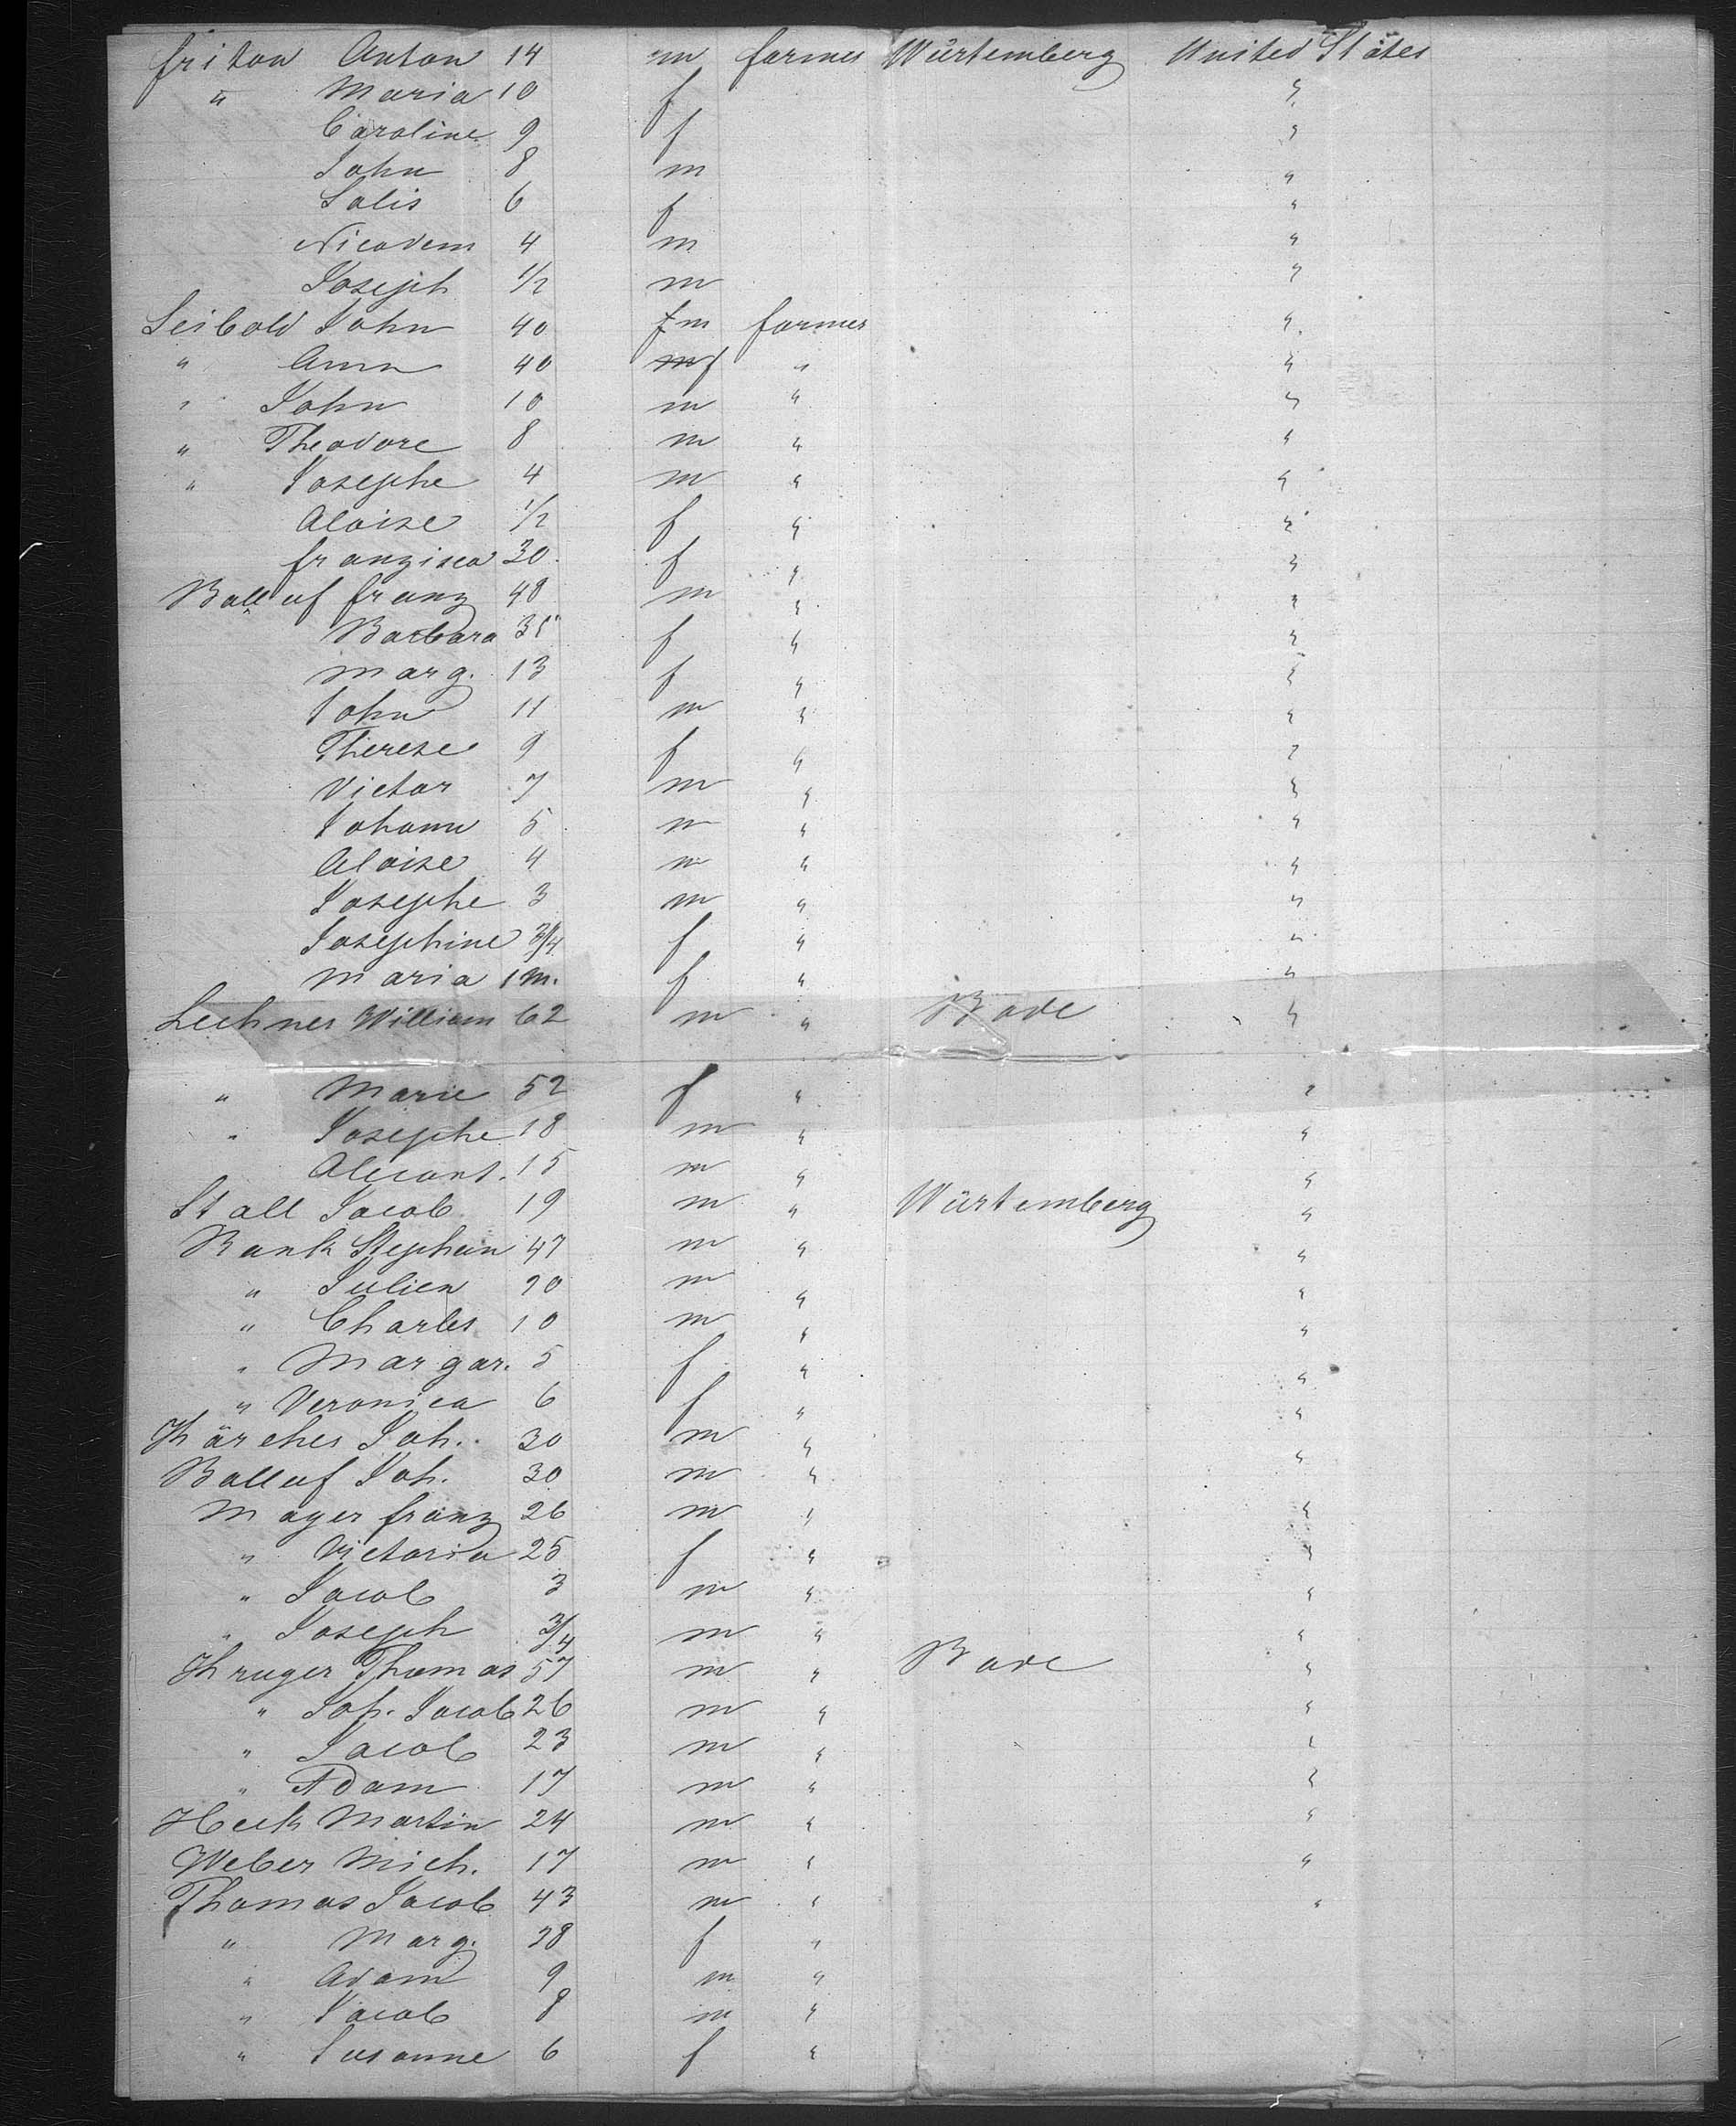 friton Anton 14 m farmer Würtemberg United States
" Maria 10 f "
Caroline 9 f "
John 8 m "
Salis 6 f "
Nicodem 4 m "
Joseph 1/2 m "
Seibold John 40 f m farmer "
" Anna 40 m f " "
" John 10 m " "
" Theodore 8 m " "
" Josephe 4 m " "
Aloise 1/2 f " "
franzisca 30 f " "
Balluf franz 48 m " "
Barbara f " "
Marg. 13 f " "
John 11 m " "
Therese 9 f " "
Victor 7 m " "
Johann 5 m " "
Aloise 4 m " "
Josephe 3 m " "
Josephine 3/4 f " "
Maria 1 m. f " "
Lechner William 62 m " Bade "
" Marie 52 f " "
" Josephe 18 m " "
15 m " "
Stall Jacob 19 m " Würtemberg "
Rank Stephan 47 m " "
" Julien 20 m " "
" Charles 10 m " "
" Margar. 5 f " "
" Veronica 6 f " "
Kärcher Joh. 30 m " "
Balluf Joh. 30 m " "
Mayer franz 26 m " "
" Victoria 25 f " "
" Jacob 3 m " "
" Joseph 3/4 m " "
Kruger Thomas 57 m " Bade "
" Joh. Jacob 26 m " "
" Jacob 23 m " "
" Adam 17 m " "
Heck Martin 24 m " "
Weber Mich. 17 m " "
Thomas Jacob 43 m " "
" Marg. 28 f "
" Adam 9 m "
" Jacob 8 m "
" Susanne 6 f "